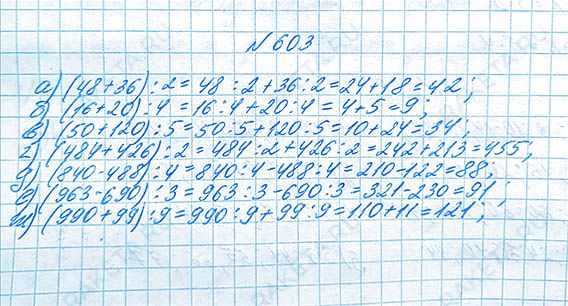 №603
а) (48+36):2=48:2+36:2=24+18=42;
б) (16+20):4=16:4+20:4=4+5=9;
в) (50+120):5=50:5+120:5=10+24=34;
г) (484+426):2=484:2+426:2=242+213=455;
д) (840-488):4=840:4-488:4=210-122=88;
е) (963-690):3=963:3-690:3=321-230=91;
ж) (990+99):9=990:9+99:9=110+11=121;